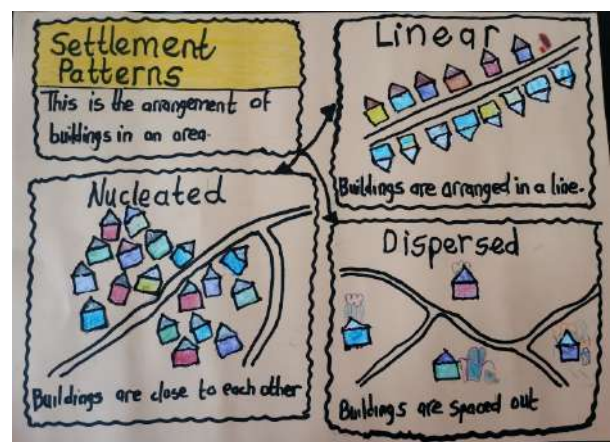 Settlement
Patterns
This is the arrangement of
buildings in an area.
Linear
Buildings are arranged in a line.
Nucleated
Buildings are close to each other
Dispersed
Buildings are spaced out